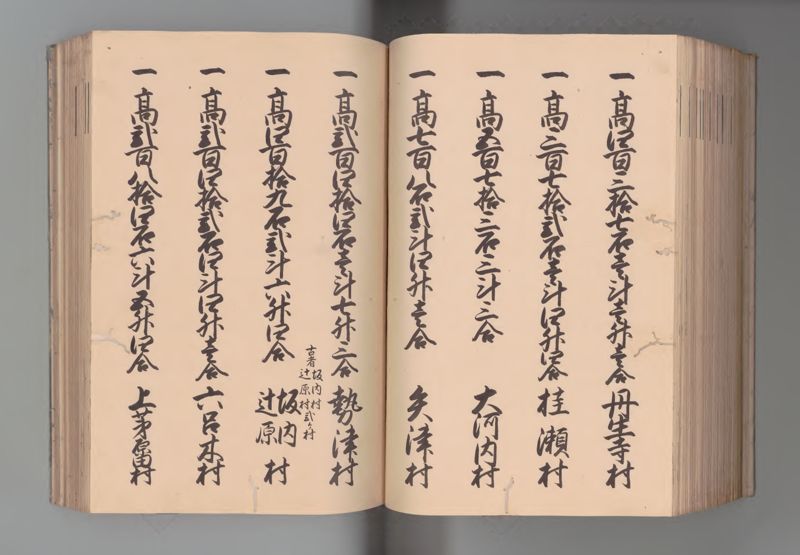 一高四百三拾七石壱斗壱升壱合 丹生寺村
一高三百七拾弐石壱斗四升四合 桂瀬村
一高五百七拾三石三斗三合 大河内村
一高七百八石弐斗四升壱合 矢津村
一高弐百四拾四石壱斗七升三合 勢津村
古者坂内村
辻原村弐ケ村
一高四百拾九石弐斗六升四合 坂内辻原村
一高弐百四拾弐石四斗四升壱合 六呂木村
一高弐百八拾四石六斗五升四合 上茅原田村